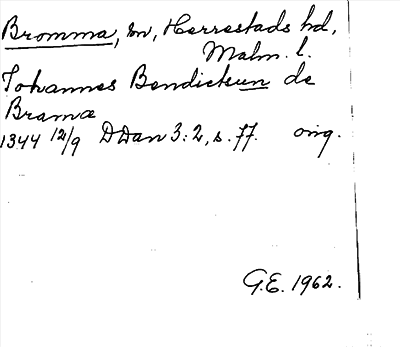 Bromma, sn, Herrestads hd,
Malm. l.
Johannes Bendictsun de
Bramæ
1344 12/9 DDan 3:2, s. 77. orig.
G.E. 1962.